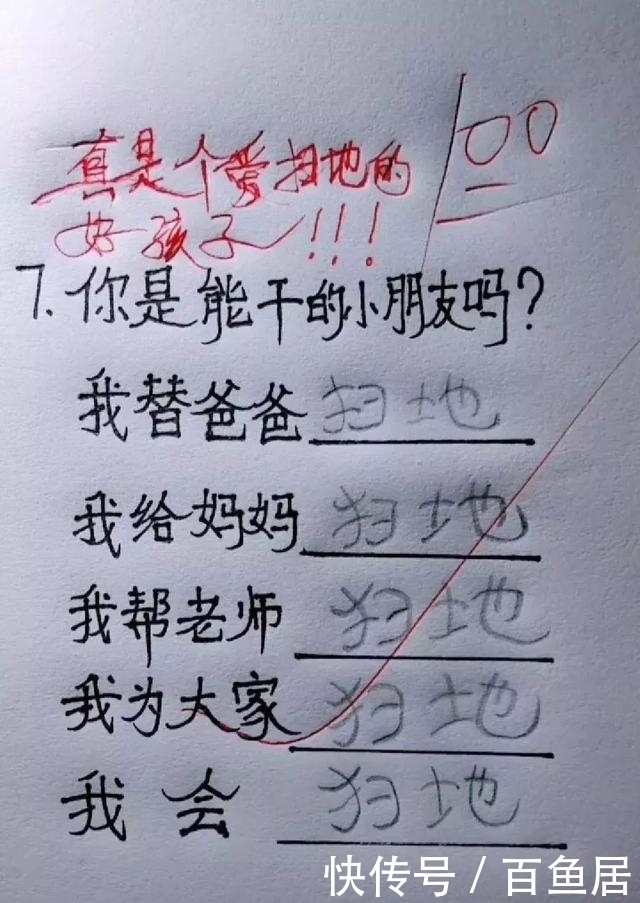 真是个爱扫地的
好孩子!!!
100
7.你是能干的小朋友吗?
我替爸爸扫地
我给妈妈扫地
我帮老师扫地
我为大家扫地
我会扫地
快传号/百鱼居